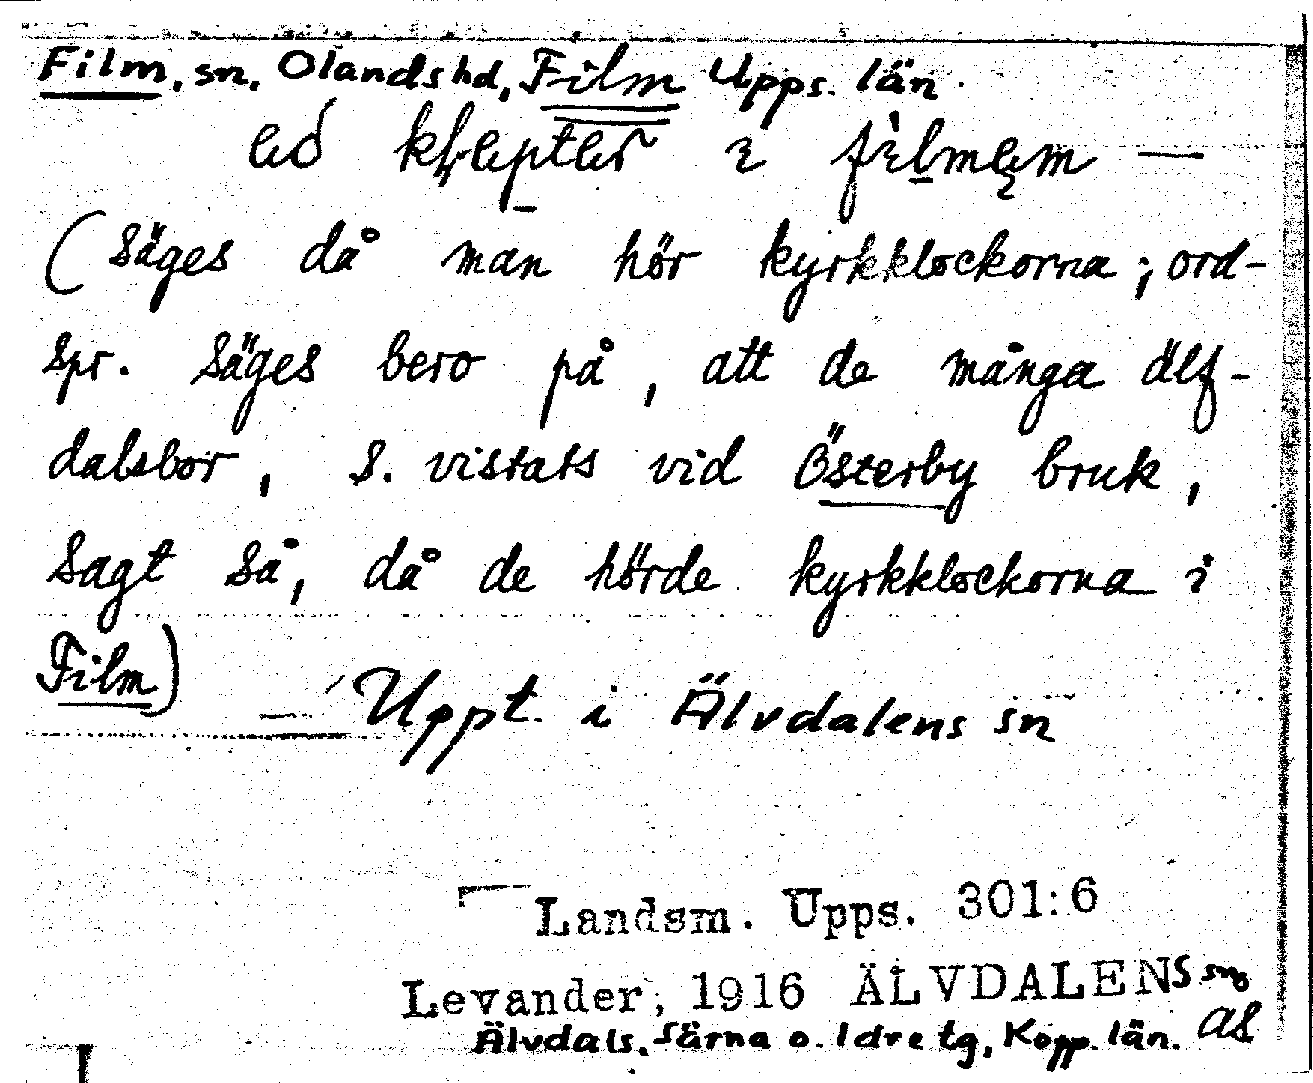 Film, sn. Olands hd, Film Upps. län.
(säges då man hör kyrkklockorna; ord-
spr. säges bero på, att de många älf-
dalsbor, s. vistats vid Österby bruk,
sagt så, då de hörde kyrkklockorna i
Film)
Uppt. i Älvdalens sn
Landsm. Upps. 301:6
Levander, 1916 ÄLVDALENS sn,
Älvdals, Särna o. Idre tg, Kopp. län. AS